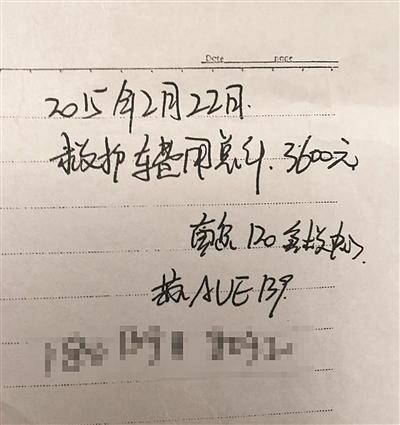 Date
2015年2月22日.
救护车费用总计.3600元
120急救中心.
AUE139.